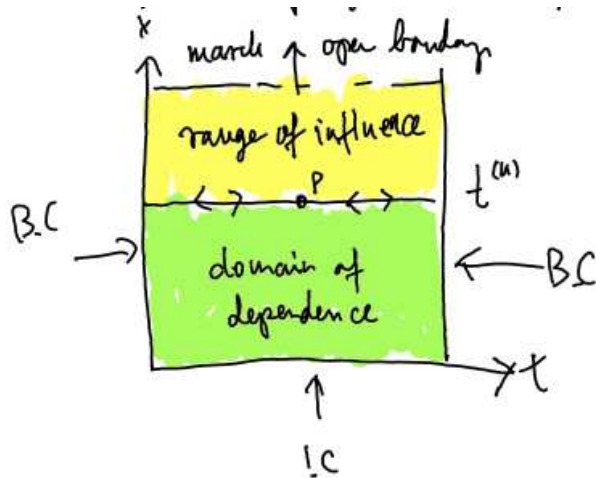 x
march open bounday
range of influence
P
t^(n)
B.C
domain of
dependence
B.C
t
I.C